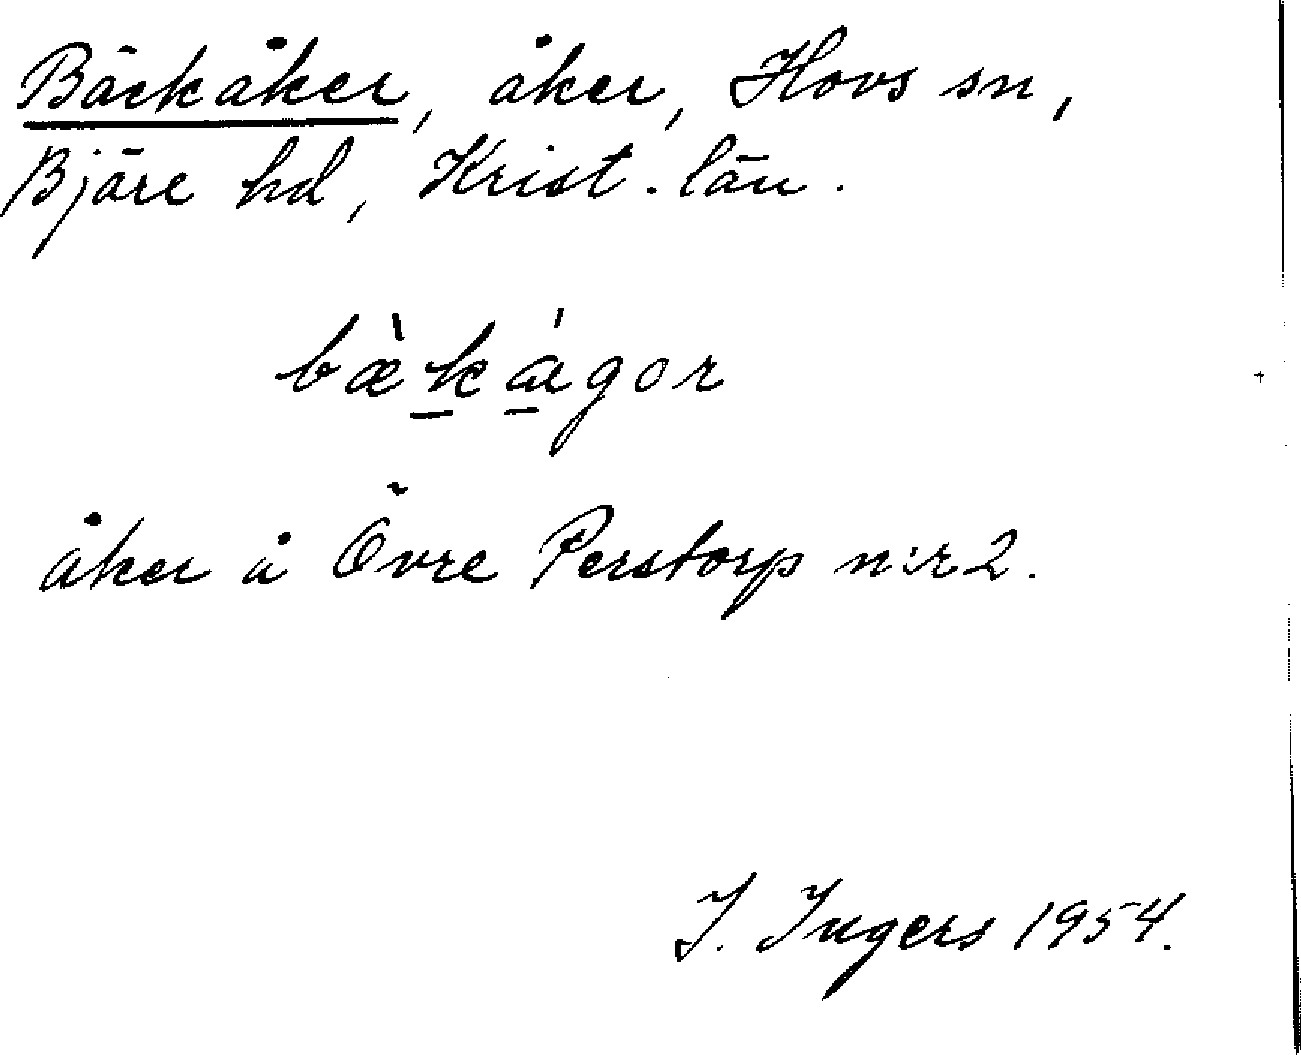 Bäckåker, åker, Hovs sn,
Bjäre hd, Krist. län.
bæ̀ḵá̱gor
åker å Övre Perstorp n:r 2.
I. Ingers 1954.